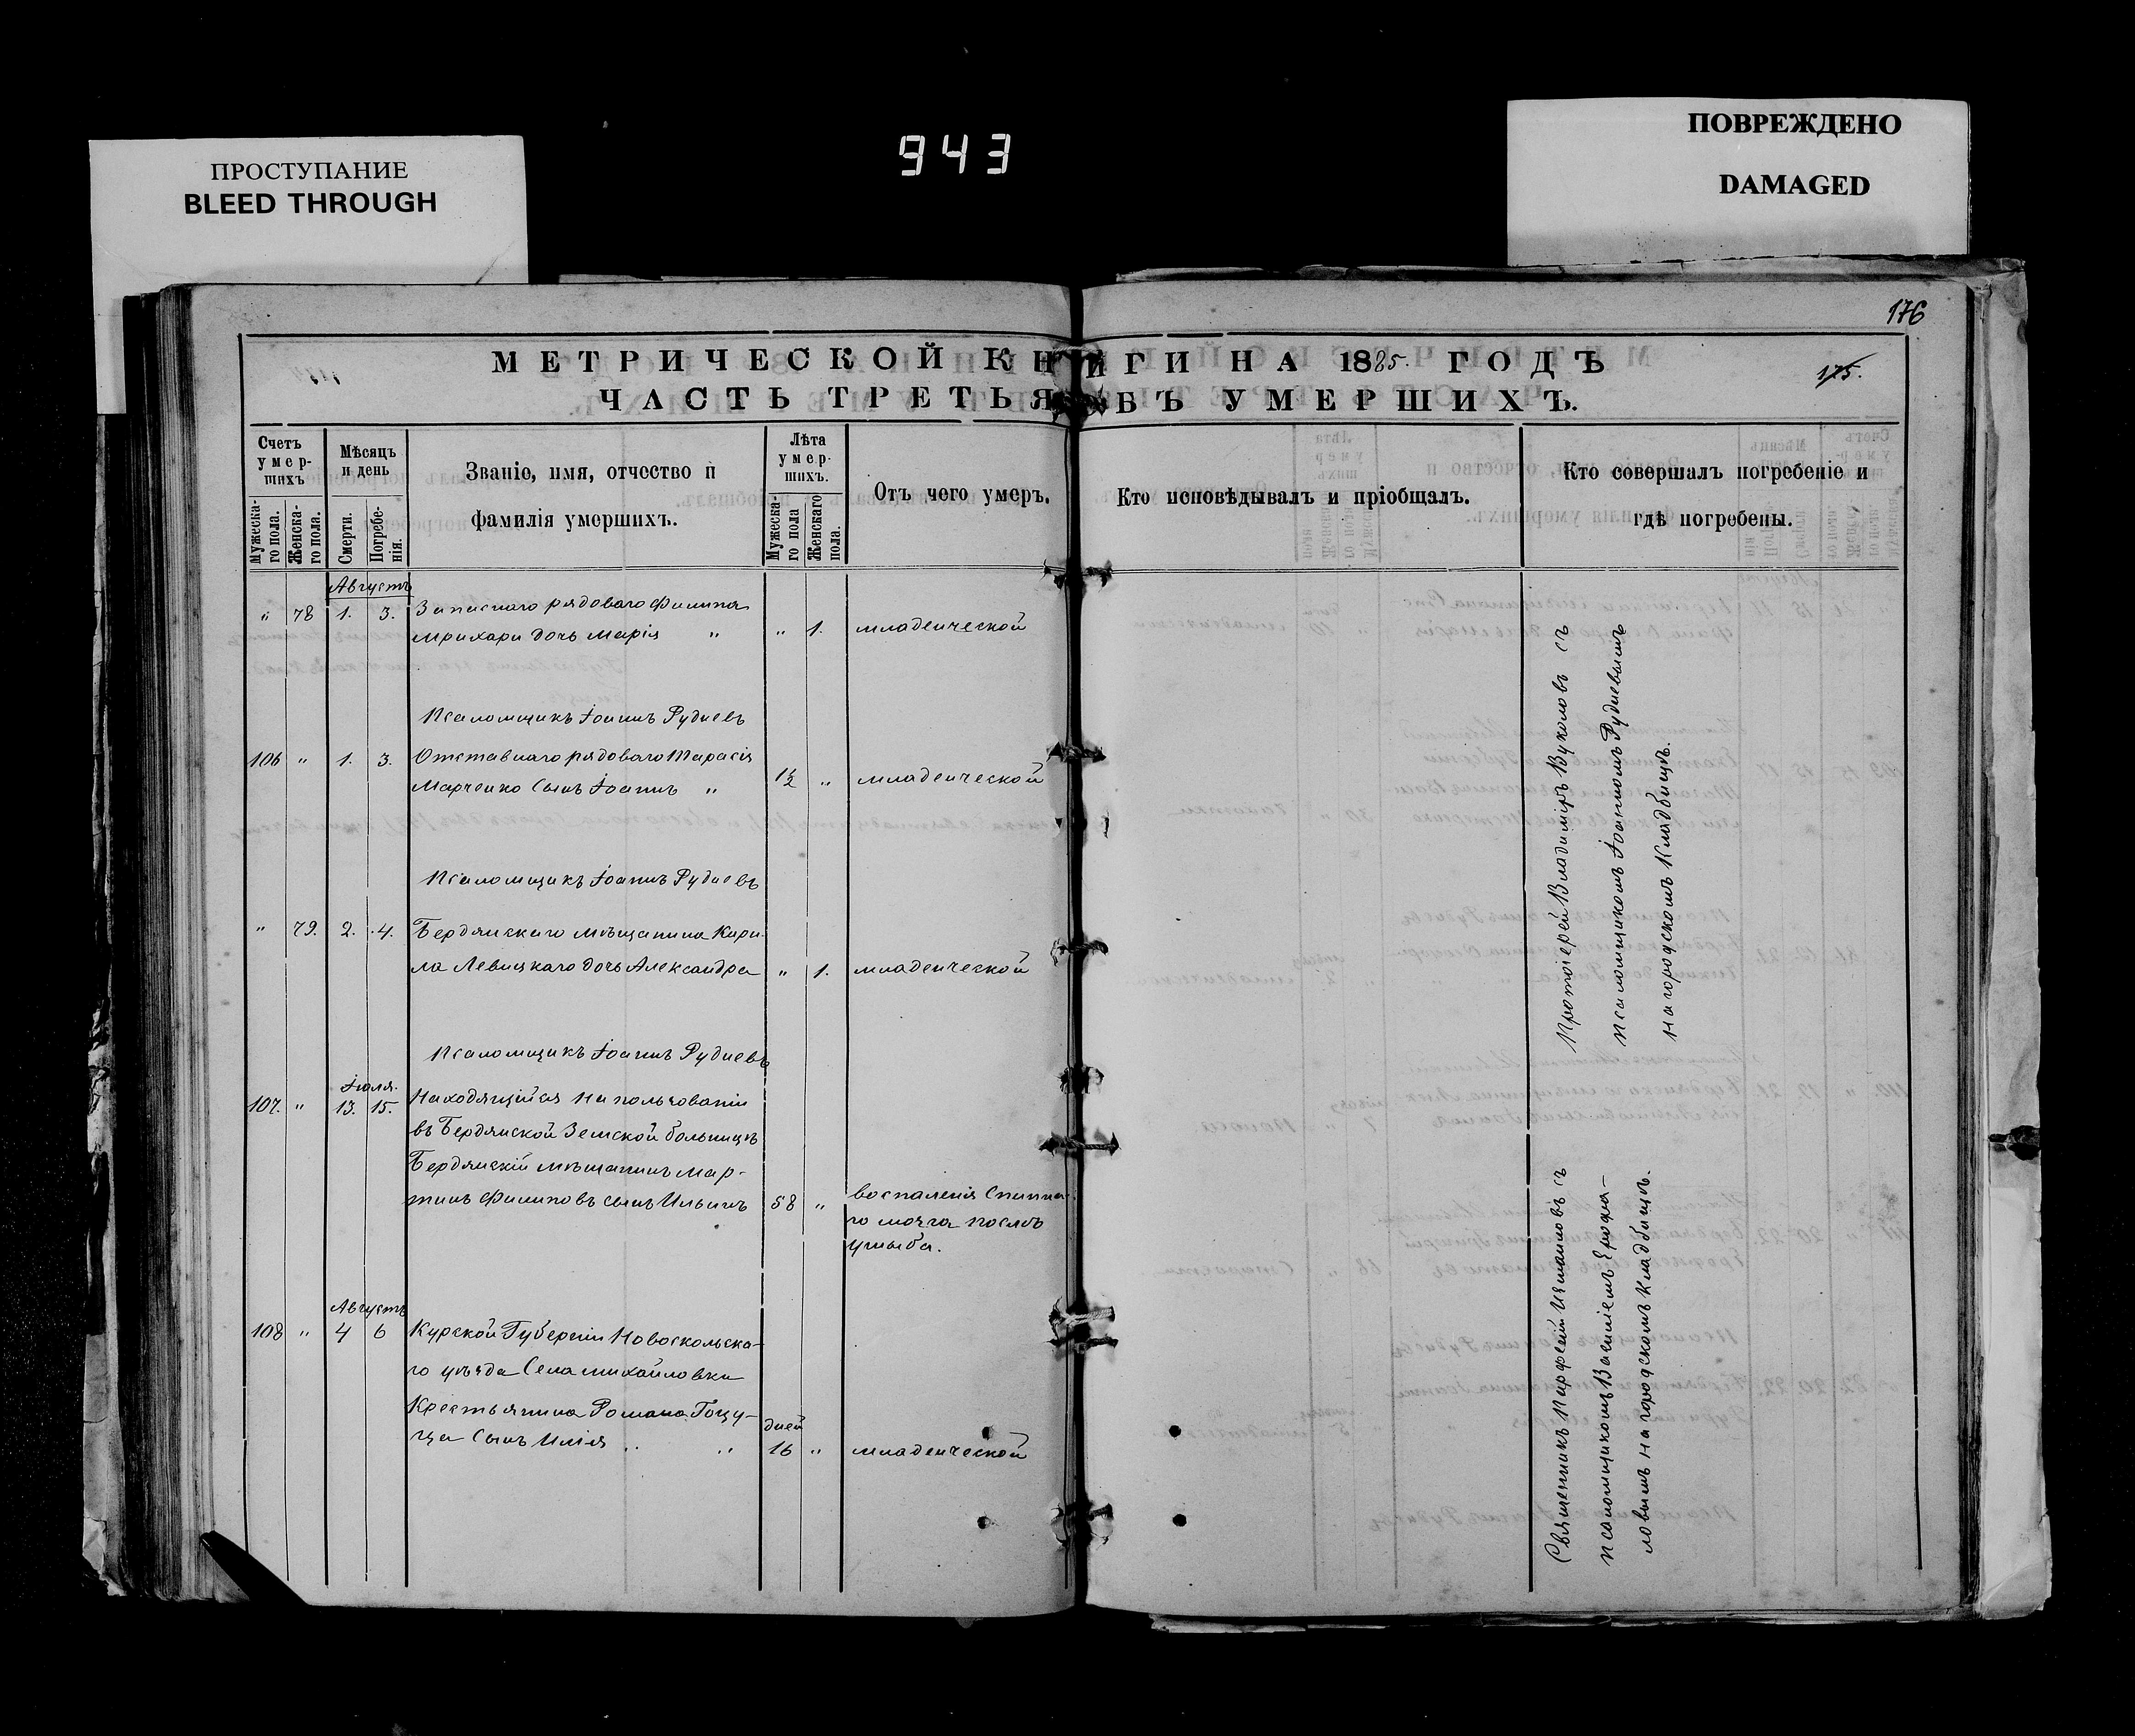 ПРОСТУПАНИЕ
BLEED THROUGH
943
ПОВРЕЖДЕНО
DAMAGED
176
МЕТРИЧЕСКОЙ КНИГИ НА 1885. ГОДЪ
175.
ЧАСТЬ ТРЕТЬЯ БЪ УМЕРШИХЪ.
Счетъ умер-шихъ
Мѣсяцъ и день
Званіе, имя, отчество и
фамилія умершихъ.
Лѣта умер-шихъ.
Отъ чего умеръ.
Кто исповѣдывалъ и пріобщалъ.
Кто совершалъ погребеніе и
гдѣ погребены.
Мужеска-го пола.
Женска-го пола.
Смерти.
Погребе-нія.
Мужеска-го пола
Женскаго пола.
Августъ
" 78 1. 3. Запаснаго рядоваго Филипа
Мрихари дочь Марія " " 1. младенческой
Псаломщикъ Іоаннъ Рудневъ
106 " 1. 3. Отставнаго рядоваго Тарасія
Марченко сынъ Іоаннъ " 1½ " младенческой
Псаломщикъ Іоаннъ Рудневъ
" 79. 2. 4. Бердянскаго мѣщанина Кири-
ла Левицкаго дочь Александра " 1. младенческой
Псаломщикъ Іоаннъ Рудневъ
Іюля.
107. " 13. 15. Находящійся на пользованіи
въ Бердянской Земской больницѣ
Бердянскій мѣщанинъ Мар-
тинъ Филиповъ сынъ Ильинъ 58 " воспаленія спинна-
го мозга послѣ
ушыба.
Августъ
108 " 4 6 Курской Губерніи Новоскольска-
го уѣзда Села Михайловки
Крестьянина Романа
сынъ Илія " " дней
16 " младенческой
Протоіерей Владиміръ Вуколовъ съ
псаломщикомъ Іоанномъ Рудневымъ
на городскомъ кладбищѣ.
Священникъ Парфеній Измаиловъ съ
псаломщикомъ Василіемъ Ерофа-
ловымъ на городскомъ кладбищѣ.